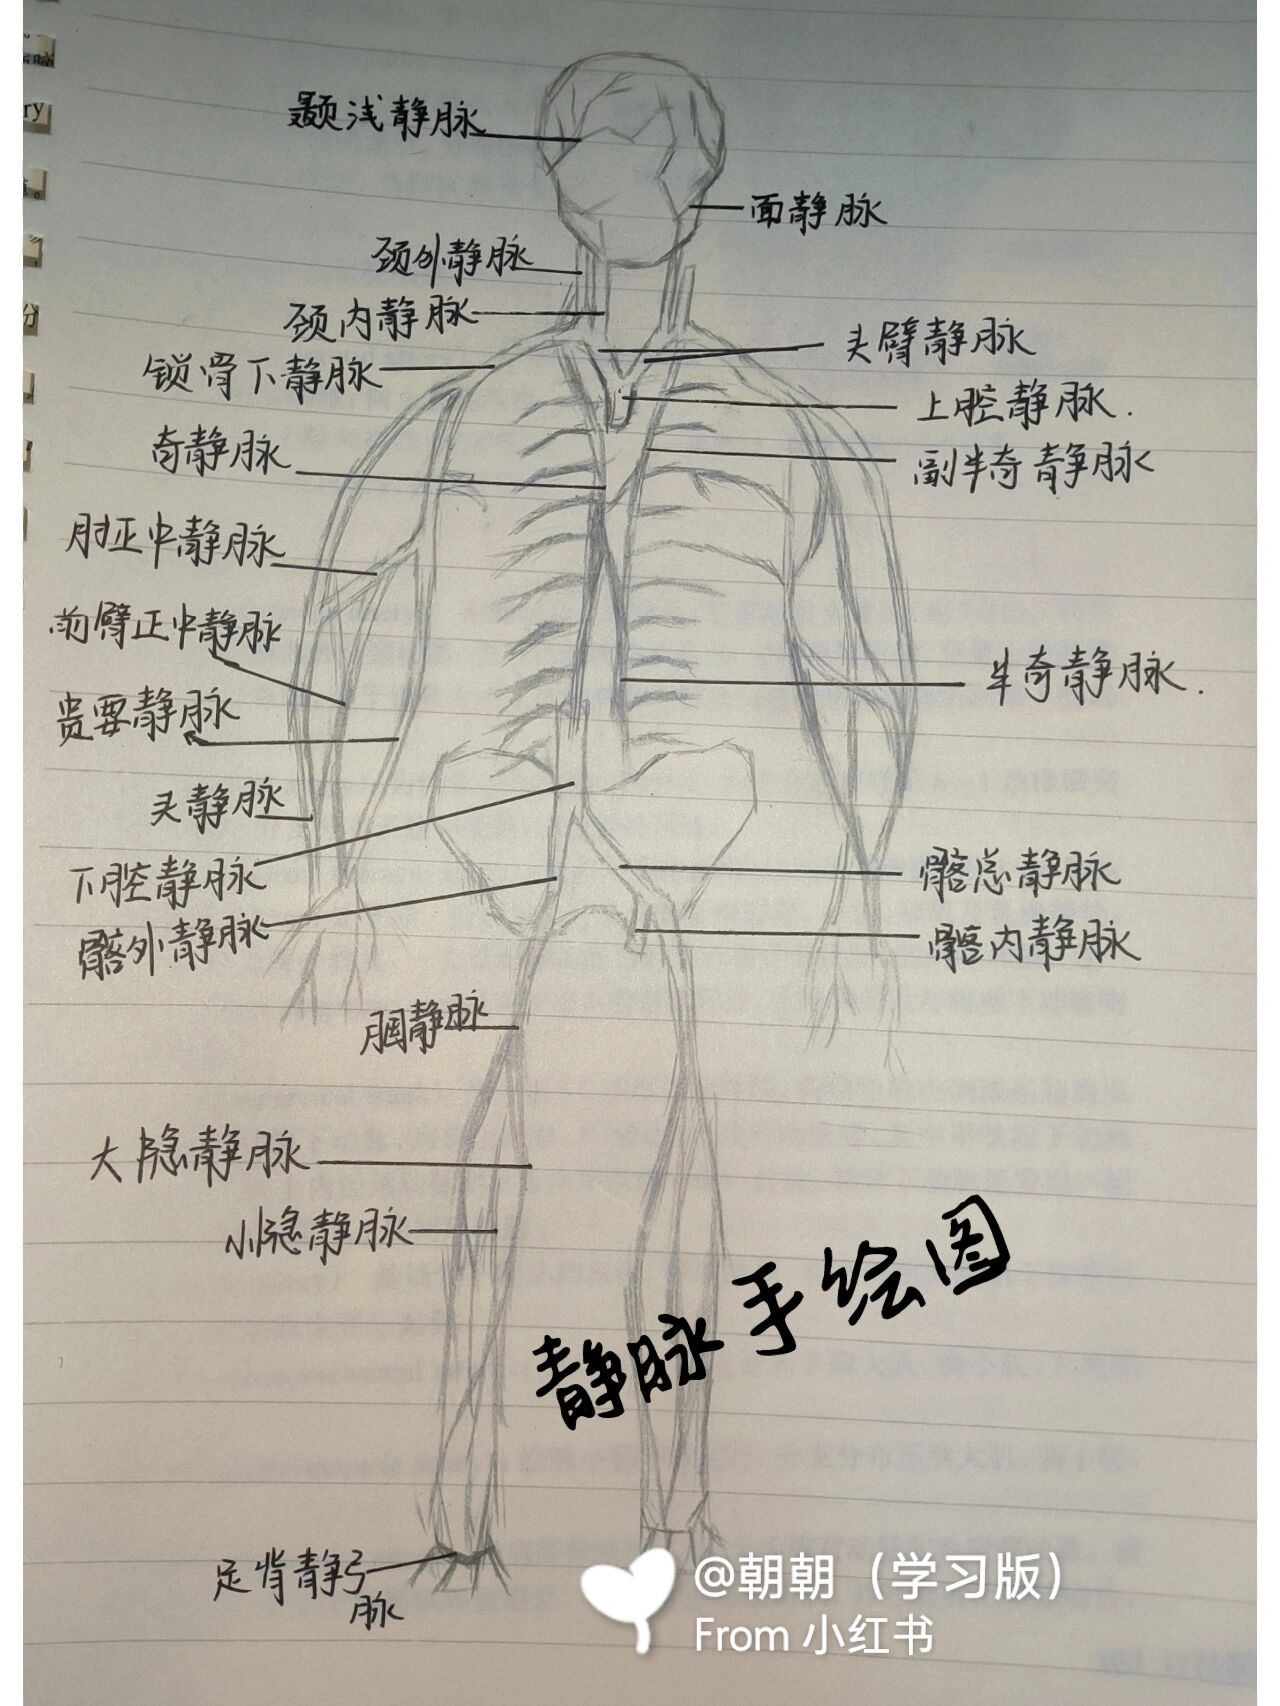 颞浅静脉
面静脉
颈外静脉
颈内静脉
头臂静脉
锁骨下静脉
上腔静脉.
奇静脉
副半奇静脉
肘正中静脉
前臂正中静脉
半奇静脉.
贵要静脉
头静脉
下腔静脉
髂总静脉
髂外静脉
髂内静脉
腘静脉
大隐静脉
小隐静脉
静脉手绘图
足背静弓
脉
@朝朝（学习版）
From 小红书
ry
份